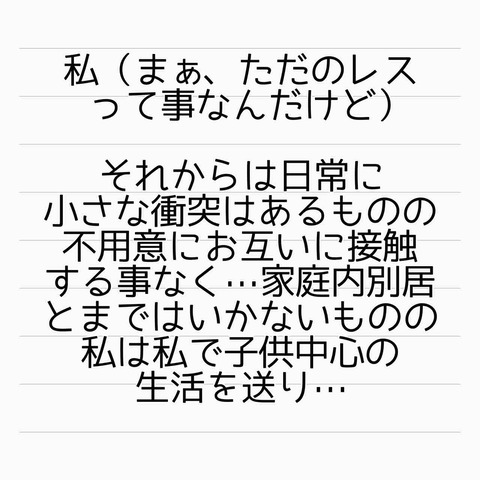 私（まぁ、ただのレス
って事なんだけど）
それからは日常に
小さな衝突はあるものの
不用意にお互いに接触
する事なく…家庭内別居
とまではいかないものの
私は私で子供中心の
生活を送り…